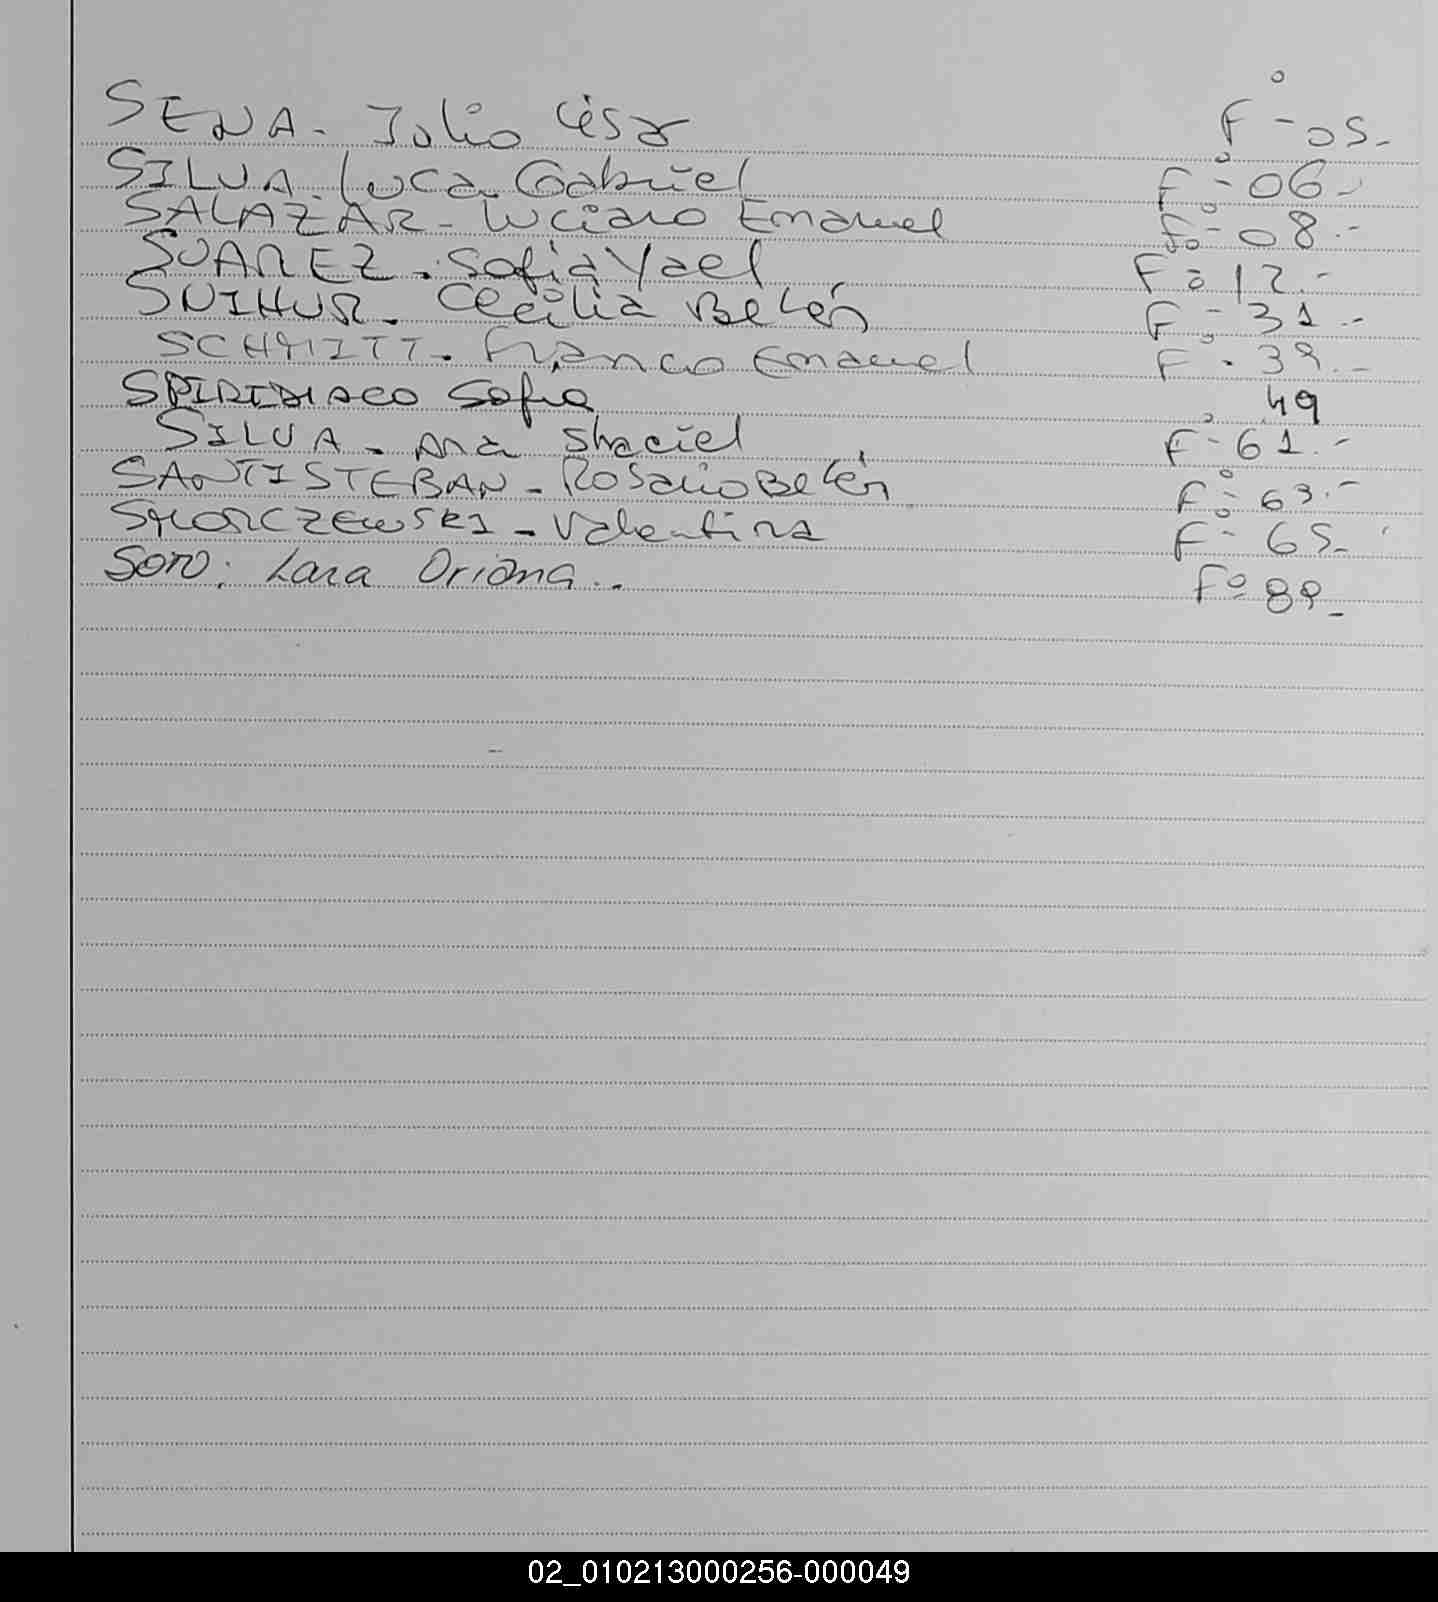 SENA - Julio César F° - 05 -
SILVA Luca Gabriel F° - 06 -
SALAZAR - Luciano Emanuel F° - 08 . -
SUAREZ - Sofia Yael F° 12 . -
SNIHUR - Cecilia Belén F° - 31 . -
SCHMITT - Franco Emanuel F° - 39 . -
Sofia 49
SILVA - Ana Shaciel F° - 61 . -
SANTISTEBAN - Rosario Belén F° - 63 . -
SKORCZEWSKI - Valentina F° - 65 -
Soto: Lara Oriana .. F° 89 -
02_010213000256-000049